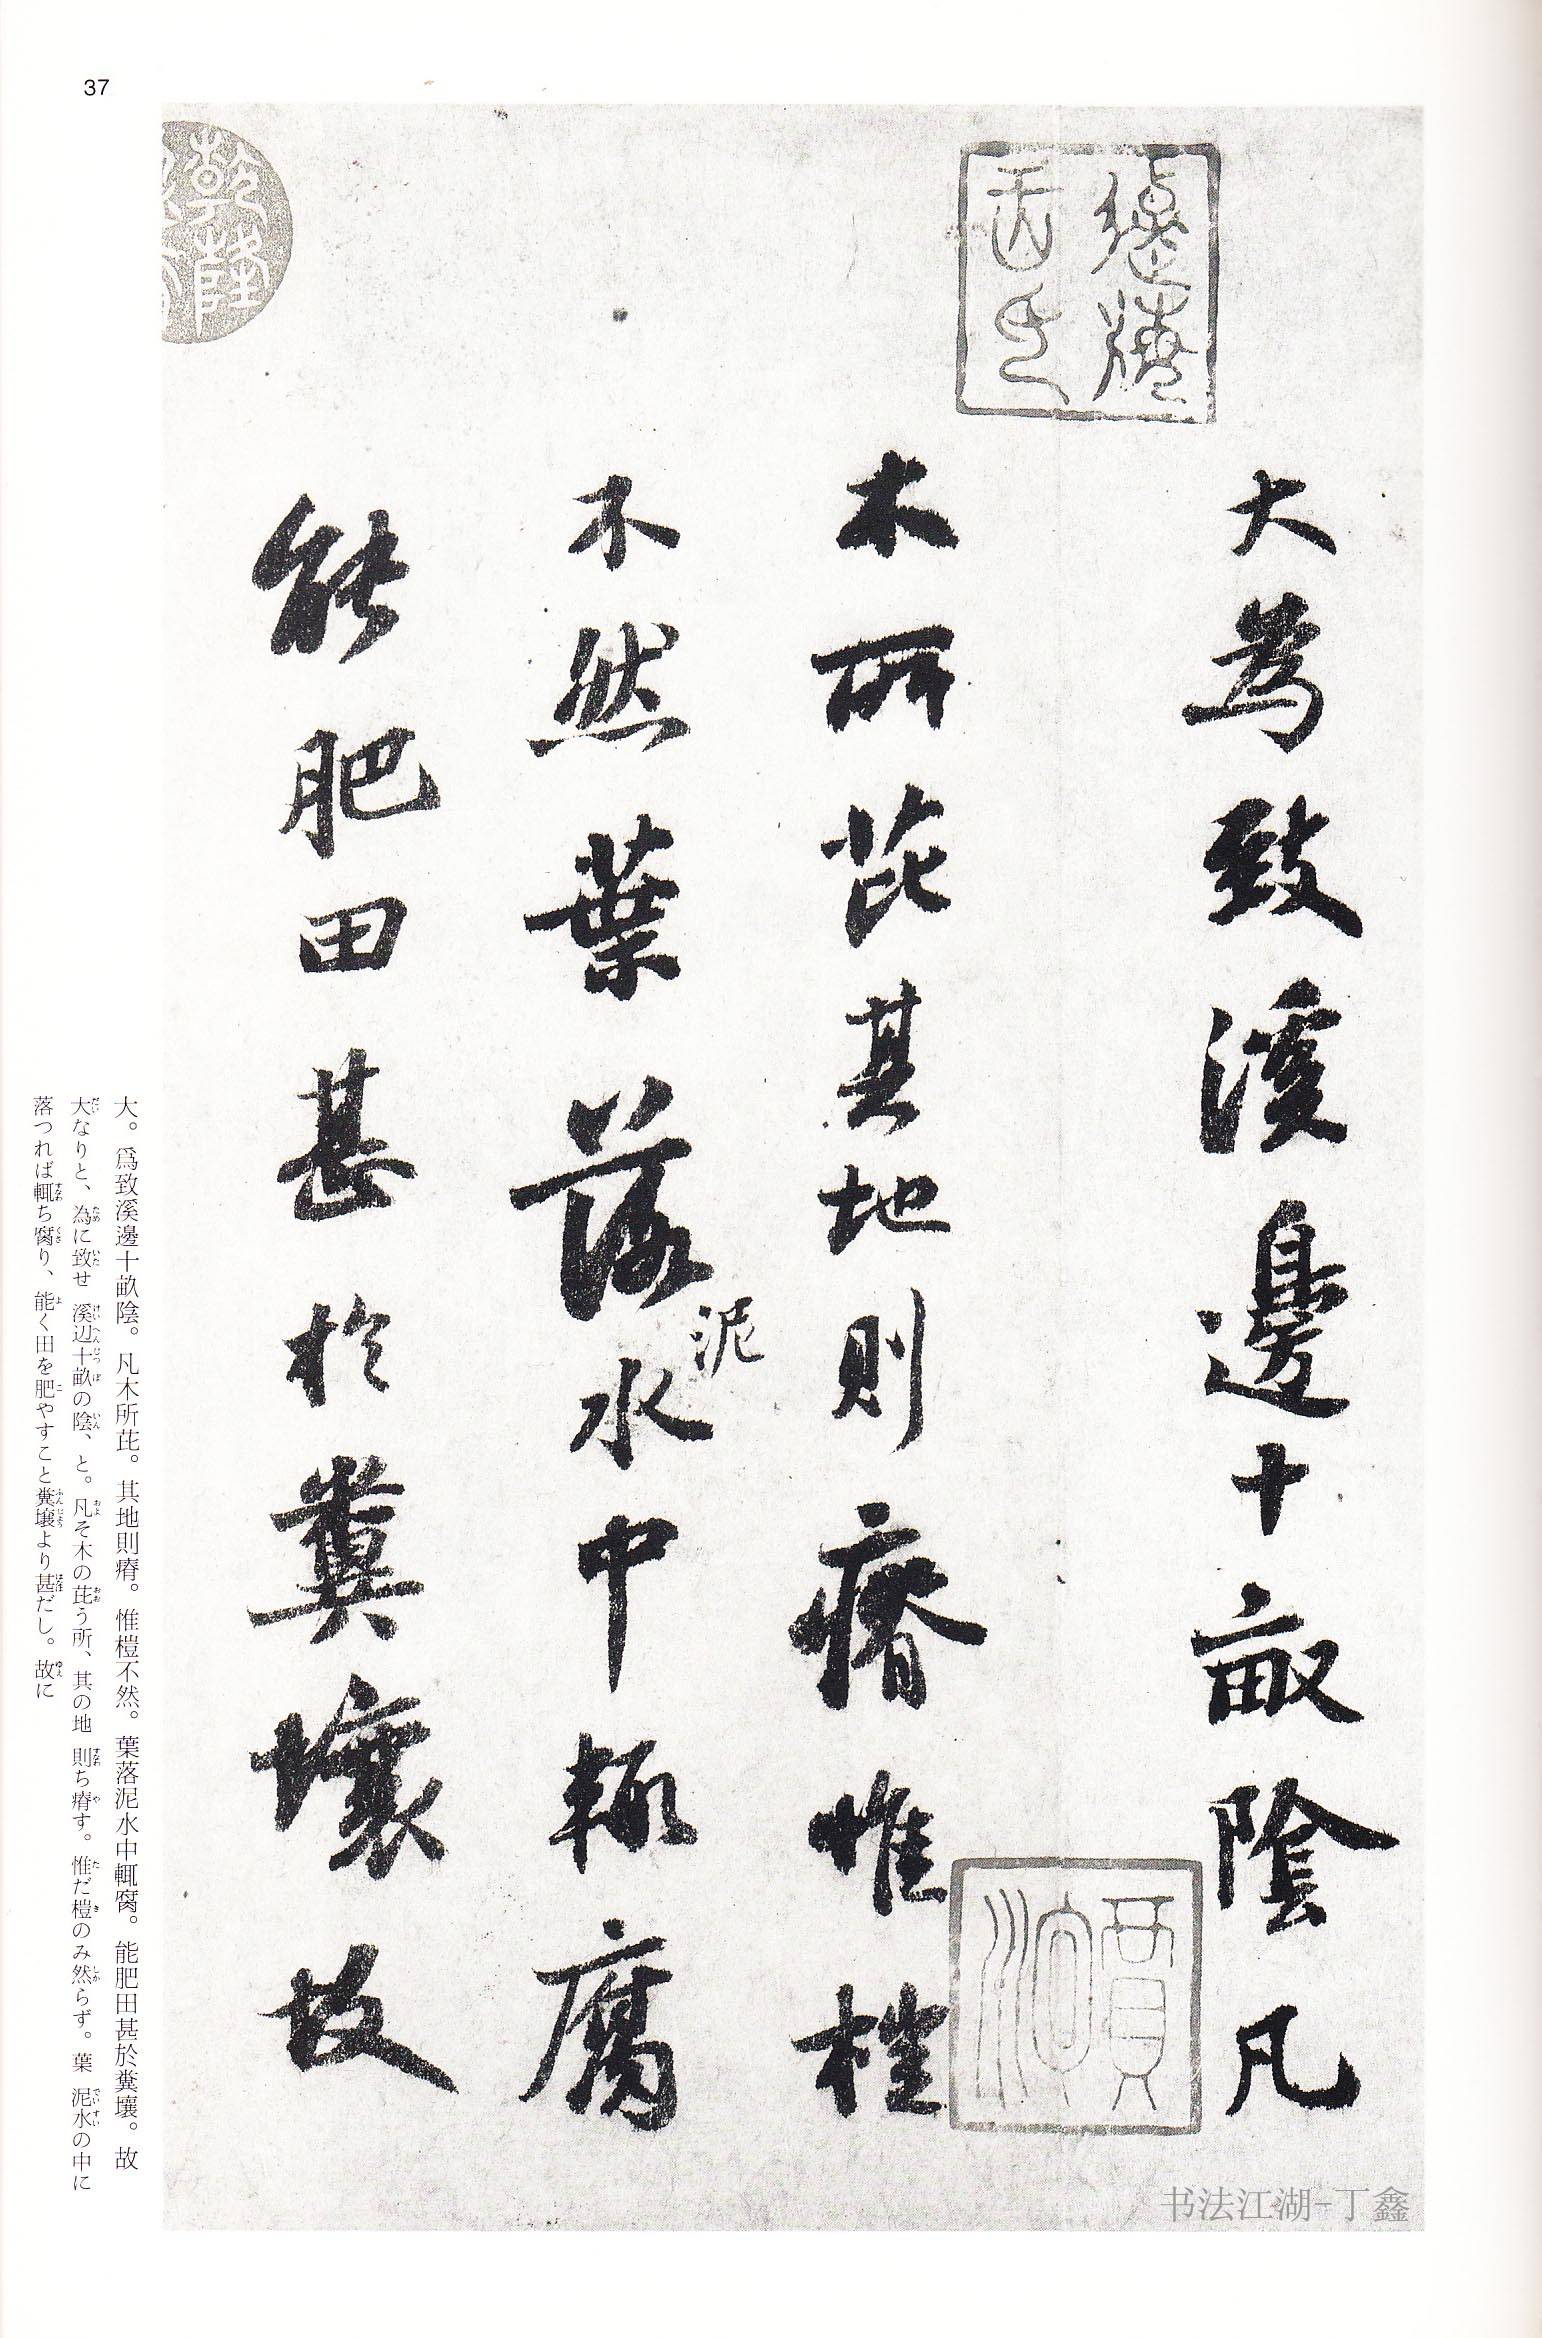 37
大為致溪邊十畝陰凡
木所芘其地則瘠惟榿
不然葉落泥水中輒腐
能肥田甚於糞壤故
乾隆
賈
大。爲致溪邊十畝陰。凡木所芘。其地則瘠。惟榿不然。葉落泥水中輒腐。能肥田甚於糞壤。故
大なりと、為に致せ 溪辺十畝の陰、と。凡そ木の芘う所、其の地 則ち瘠す。惟だ榿のみ然らず。葉 泥水の中に
落つれば輒ち腐り、能く田を肥やすこと糞壌より甚だし。故に
书法江湖-丁鑫